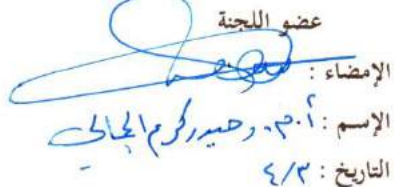 عضو اللجنة
الإمضاء :
الإسم : أ.م.د حيدر كرم الجمالي
التاريخ : ٤/٣